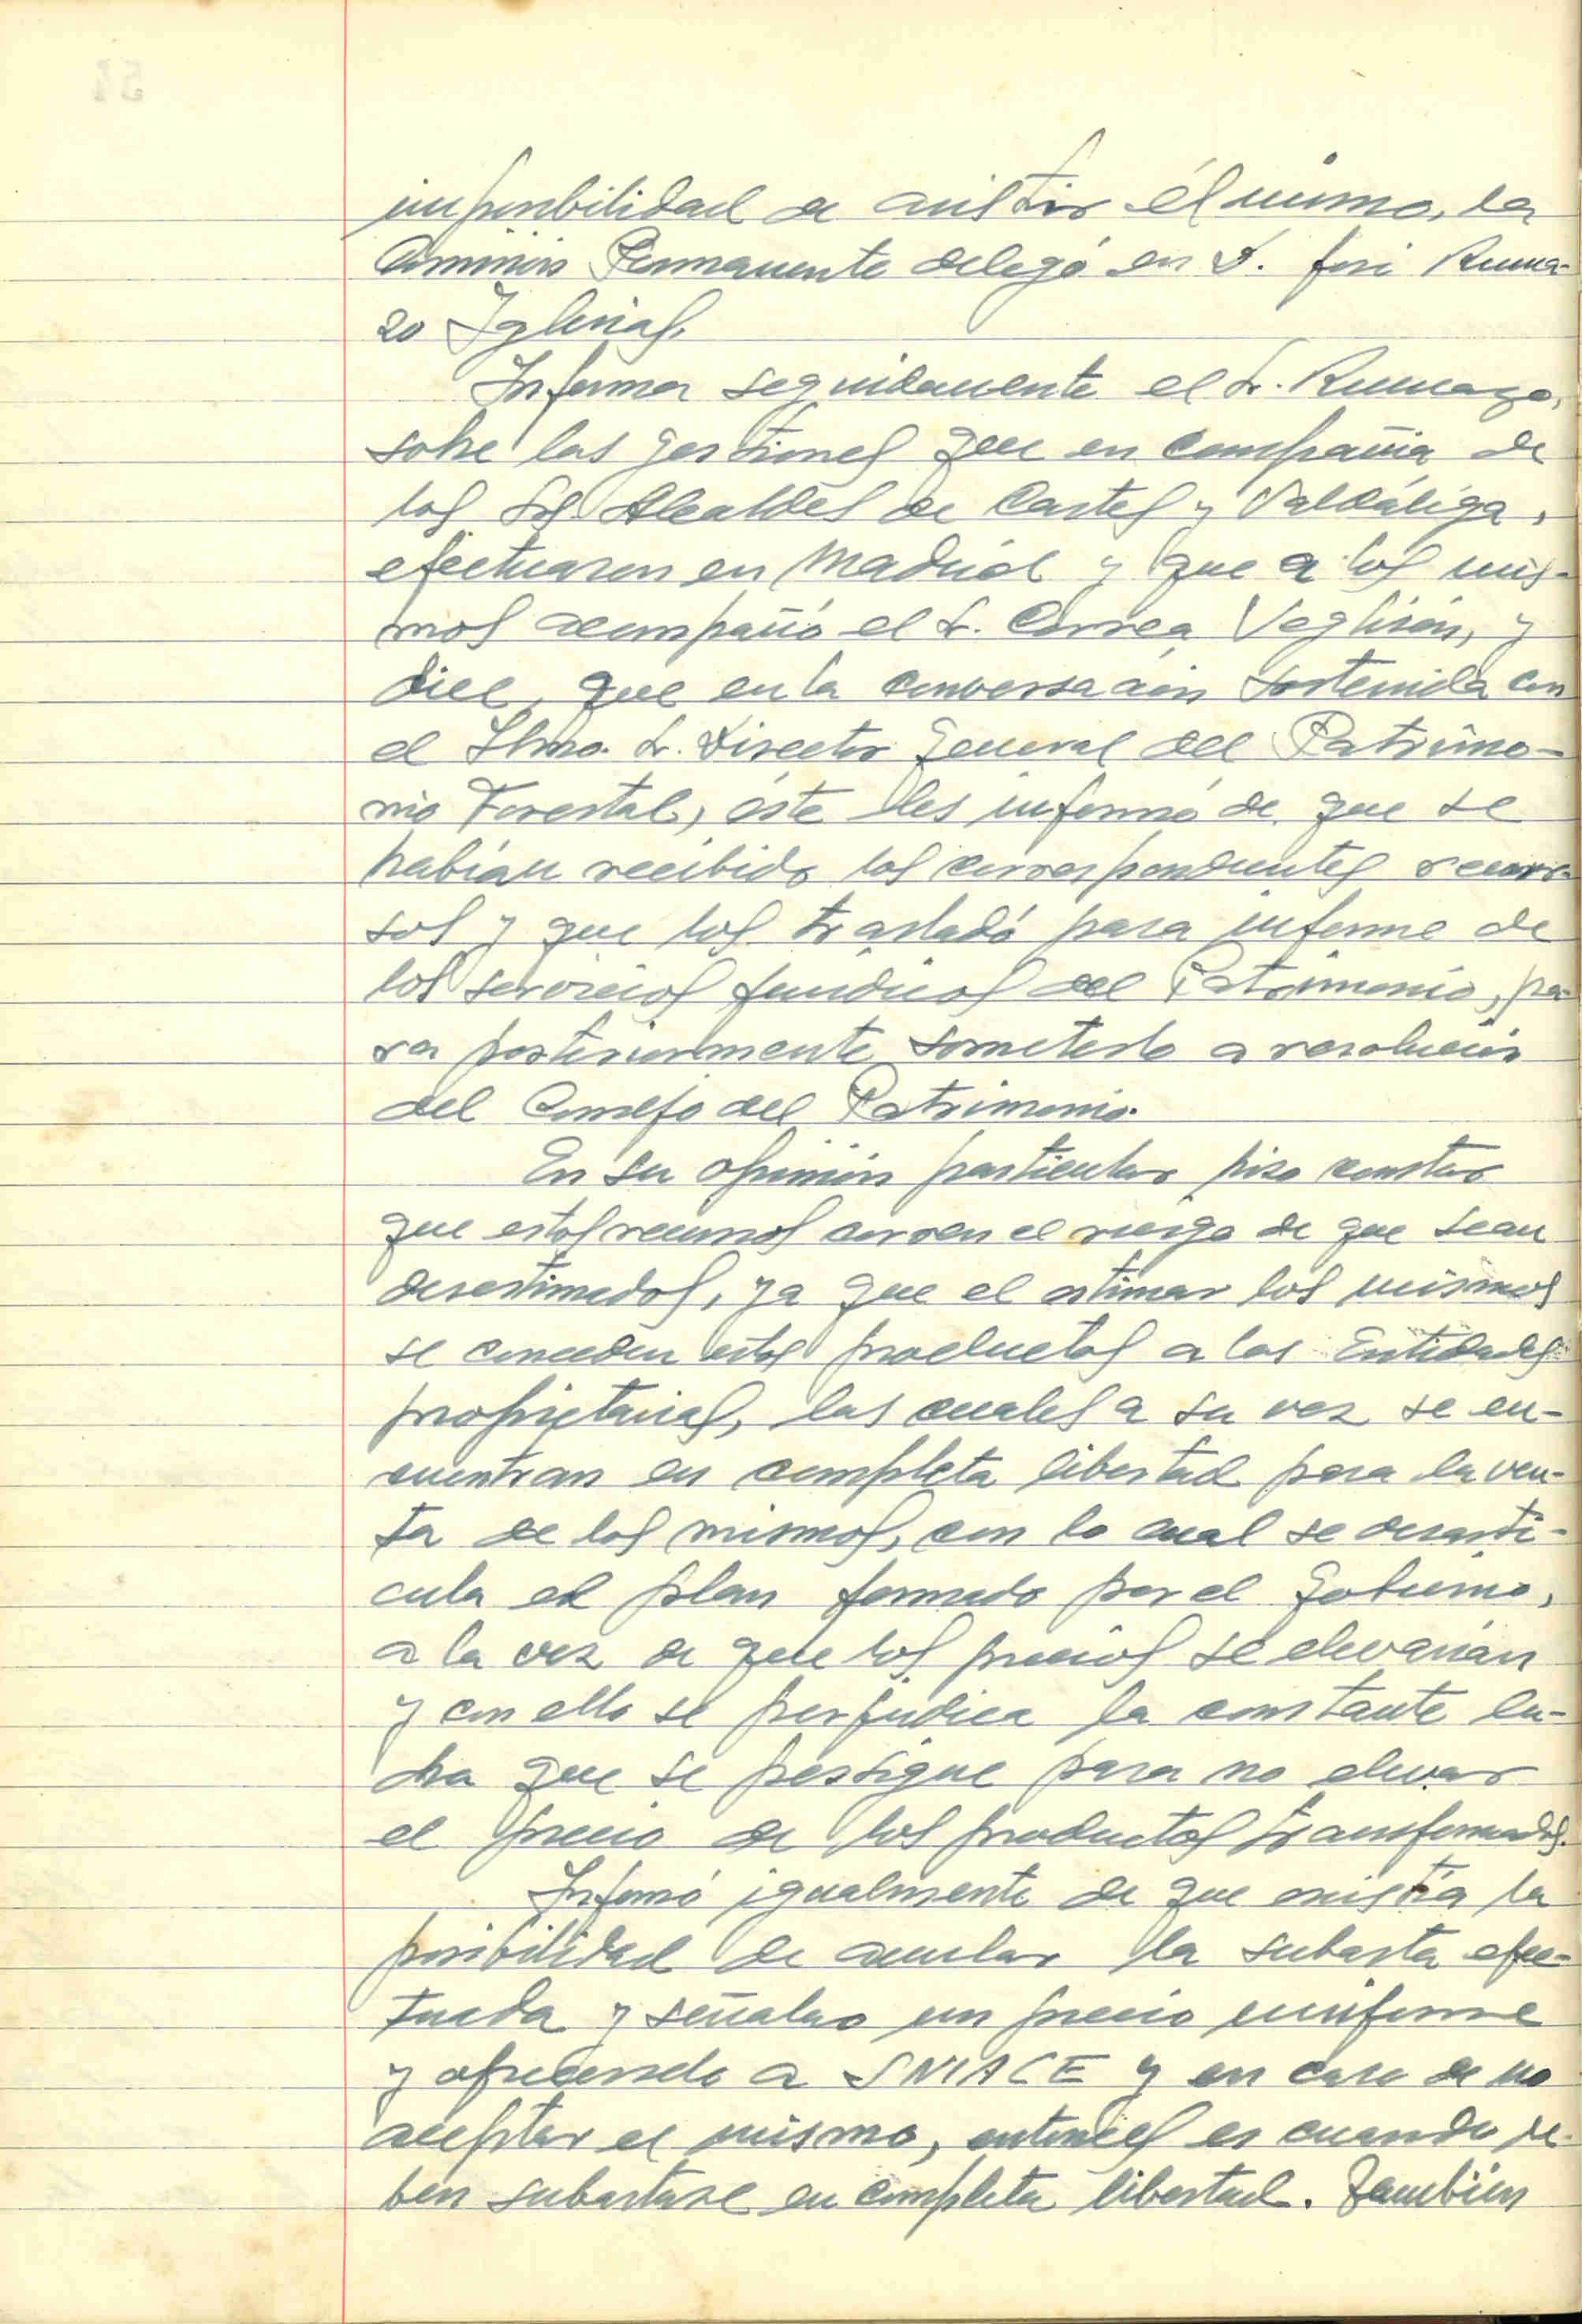 imposibilidad de asistir él mismo, la
Comisión Permanente delegó en D. José Ruma-
zo Iglesias.
Informa seguidamente el Sr. Rumazo,
sobre las gestiones que en compañia de
los Srs. Alcaldes de Cartes y Valdáliga,
efectuaron en Madrid y que a los mis-
mos acompañó el Sr. Correa Veglisón, y
dice, que en la conversación sostenida con
el Ilmo. Sr. Director General del Patrimo-
nio Forestal, éste les informó de que se
habían recibido los correspondientes recur-
sos y que los trasladó para informe de
los servicios jurídicos del Patrimonio, pa-
ra posteriormente someterlo a resolución
del Consejo del Patrimonio.
En su opinión particular hizo constar
que estos recursos corren el riesgo de que sean
desestimados, ya que el estimar los mismos
se conceden estos productos a las Entidades
propietarias, las cuales a su vez se en-
cuentran en completa libertad para la ven-
ta de los mismos, con lo cual se desarti-
cula el plan formado por el Gobierno,
a la vez de que los precios se elevarían
y con ello se perjudica la constante lu-
cha que se persigue para no elevar
el precio de los productos transformados.
Informó igualmente de que existía la
posibilidad de anular la subasta efec-
tuada y señalar un precio uniforme
y ofrecerselo a SNIACE y en caso de no
aceptar el mismo, entonces es cuando de-
ben subastarse en completa libertad. También